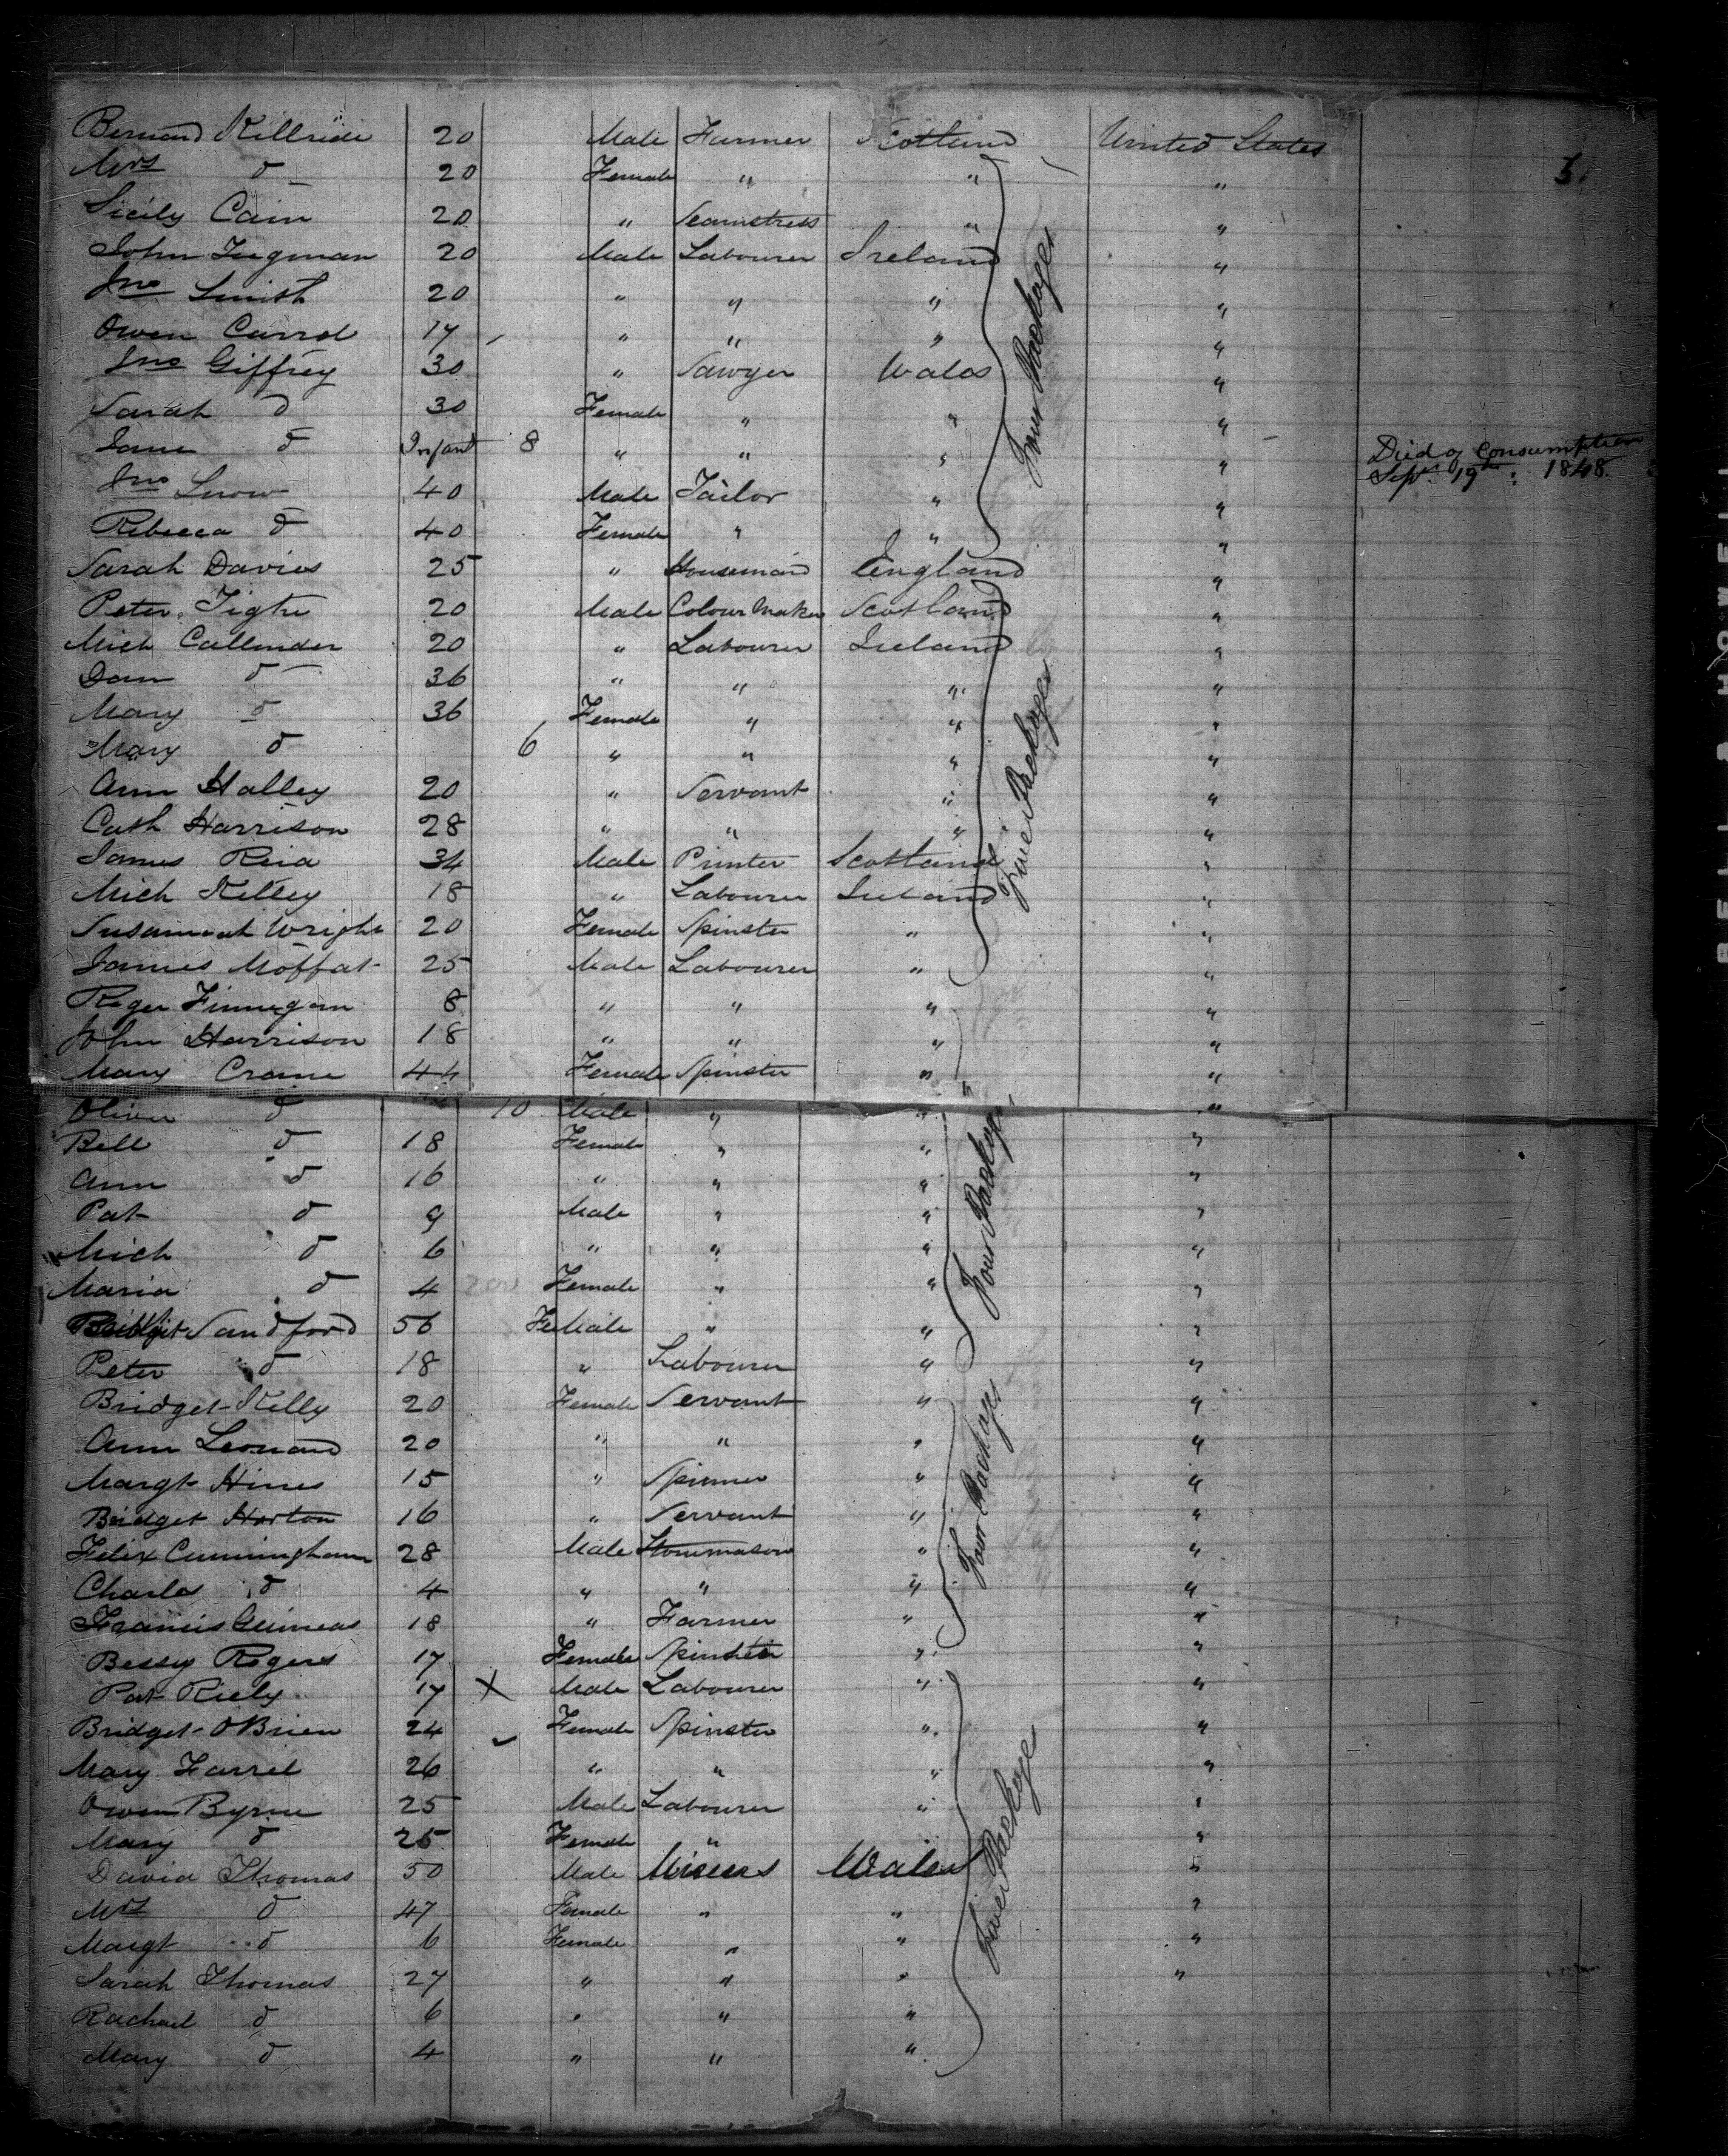 Bernard Killride 20 Male Farmer Scotland United States
3.
Mrs do 20 Female " " "
Sicily Cain 20 " Seamstress " "
John Tugman 20 Male Labourer Ireland "
Jno Smith 20 " " " "
Owen Carrol 17 " " " "
Jno Giffrey 30 " Sawyer Wales "
Four Packages
Sarah do 30 Female " " "
Jane do Infant 8 " " " " Died of Consumption
Sept. 19th: 1848.
Jno Snow 40 Male Tailor " "
Rebecca do 40 Female " " "
Sarah Davies 25 " Housemaid England "
Peter Tighe 20 Male Colour Maker Scotland "
Mich Callender 20 " Labourer Ireland "
Dan do 36 " " " "
Mary do 36 Female " " "
Mary do 6 " " " "
Ann Halley 20 " Servant " "
Five Packages
Cath Harrison 28 " " " "
James Reid 34 Male Printer Scotland "
Mich Kelley 18 " Labourer Ireland "
Susannah Wright 20 Female Spinster " "
James Moffat 25 Male Labourer " "
Roger Finnegan 8 " " " "
John Harrison 18 " " " "
Mary Crane 44 Female Spinster " "
Oliver do 10 Male " " "
Bell do 18 Female " " "
Ann do 16 " " " "
Four Packages
Pat do 9 Male " " "
Mich do 6 " " " "
Maria do 4 Female " " "
Bridget Sandford 56 FeMale " " "
Peter do 18 " Labourer " "
Bridget Kelly 20 Female Servant " "
Ann Leonard 20 " " " "
Margt Hines 15 " Spinner " "
Four Packages
Bridget Horton 16 " Servant " "
Felix Cunningham 28 Male Stonemason " "
Charles do 4 " " " "
Francis Guineas 18 " Farmer " "
Bessy Rogers 17 Female Spinster " "
Pat Riely 17 X Male Labourer " "
Bridget OBrien 24 Female Spinster " "
Mary Farrel 26 " " " "
Owen Byrne 25 Male Labourer " "
Mary do 25 Female " " "
Five Packages
David Thomas 50 Male Miners Wales "
Mrs do 47 Female " " "
Margt do 6 Female " " "
Sarah Thomas 27 " " " "
Rachael do 6 " " "
Mary do 4 " " "